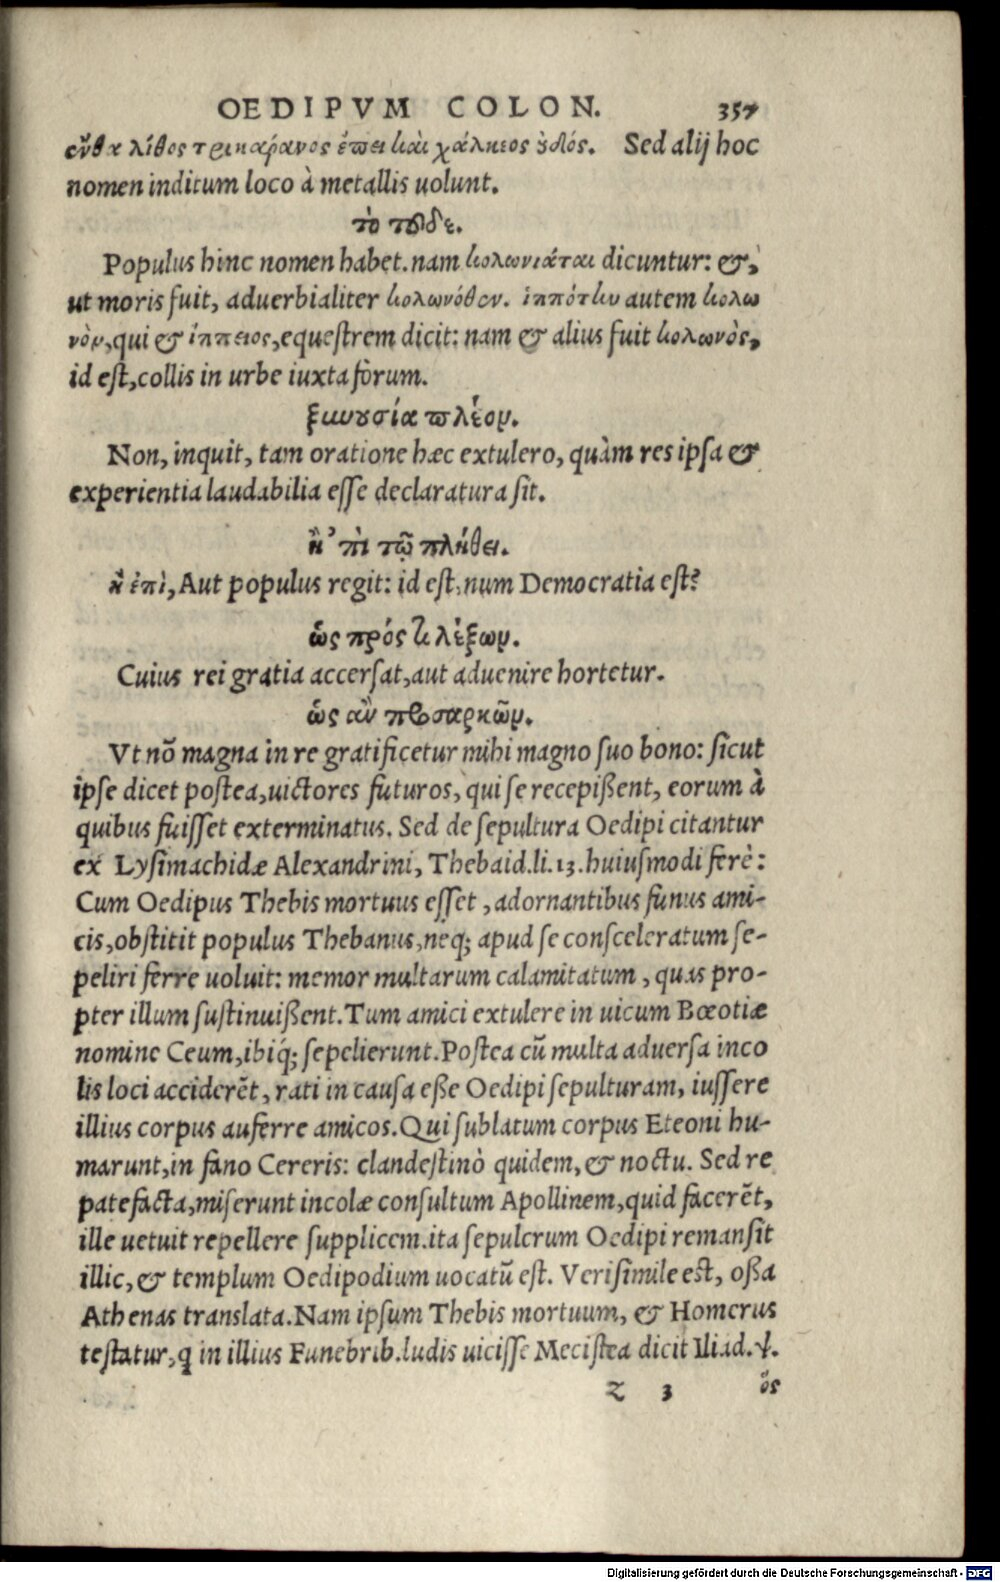 OEDIPVM COLON. 357
ἔνθα λίθος τρικάρανος ἔπει καὶ χάλκεος ὀδός. Sed alij hoc
nomen inditum loco à metallis uolunt.
τὸ τοῦδε.
Populus hinc nomen habet. nam κολωνιάται dicuntur: &,
ut moris fuit, aduerbialiter κολωνόθεν. ἱππότην autem κολω
νὸν, qui & ἵππειος, equestrem dicit: nam & alius fuit κολωνὸς,
id est, collis in urbe iuxta forum.
ξυνουσία πλέον.
Non, inquit, tam oratione hæc extulero, quàm res ipsa &
experientia laudabilia esse declaratura sit.
ἢ 'πὶ τῷ πλήθει.
ἢ ἐπὶ, Aut populus regit: id est, num Democratia est?
ὡς πρός τι λέξων.
Cuius rei gratia accersat, aut aduenire hortetur.
ὡς ἂν προσαρκῶν.
Vt nō magna in re gratificetur mihi magno suo bono: sicut
ipse dicet postea, uictores futuros, qui se recepißent, eorum à
quibus fuisset exterminatus. Sed de sepultura Oedipi citantur
ex Lysimachidæ Alexandrini, Thebaid. li. 13. huiusmodi ferè:
Cum Oedipus Thebis mortuus esset, adornantibus funus ami-
cis, obstitit populus Thebanus, neq; apud se consceleratum se-
peliri ferre uoluit: memor multarum calamitatum, quas pro-
pter illum sustinuißent. Tum amici extulere in uicum Bœotiæ
nomine Ceum, ibiq́; sepelierunt. Postea cū multa aduersa inco
lis loci acciderēt, rati in causa eße Oedipi sepulturam, iussere
illius corpus auferre amicos. Qui sublatum corpus Eteoni hu-
marunt, in fano Cereris: clandestinò quidem, & noctu. Sed re
patefacta, miserunt incolæ consultum Apollinem, quid facerēt,
ille uetuit repellere supplicem. ita sepulcrum Oedipi remansit
illic, & templum Oedipodium uocatū est. Verisimile est, oßa
Athenas translata. Nam ipsum Thebis mortuum, & Homerus
testatur, q in illius Funebrib. ludis uicisse Mecistea dicit Iliad. ψ.
Z 3 ὅς
Digitalisierung gefördert durch die Deutsche Forschungsgemeinschaft - DFG